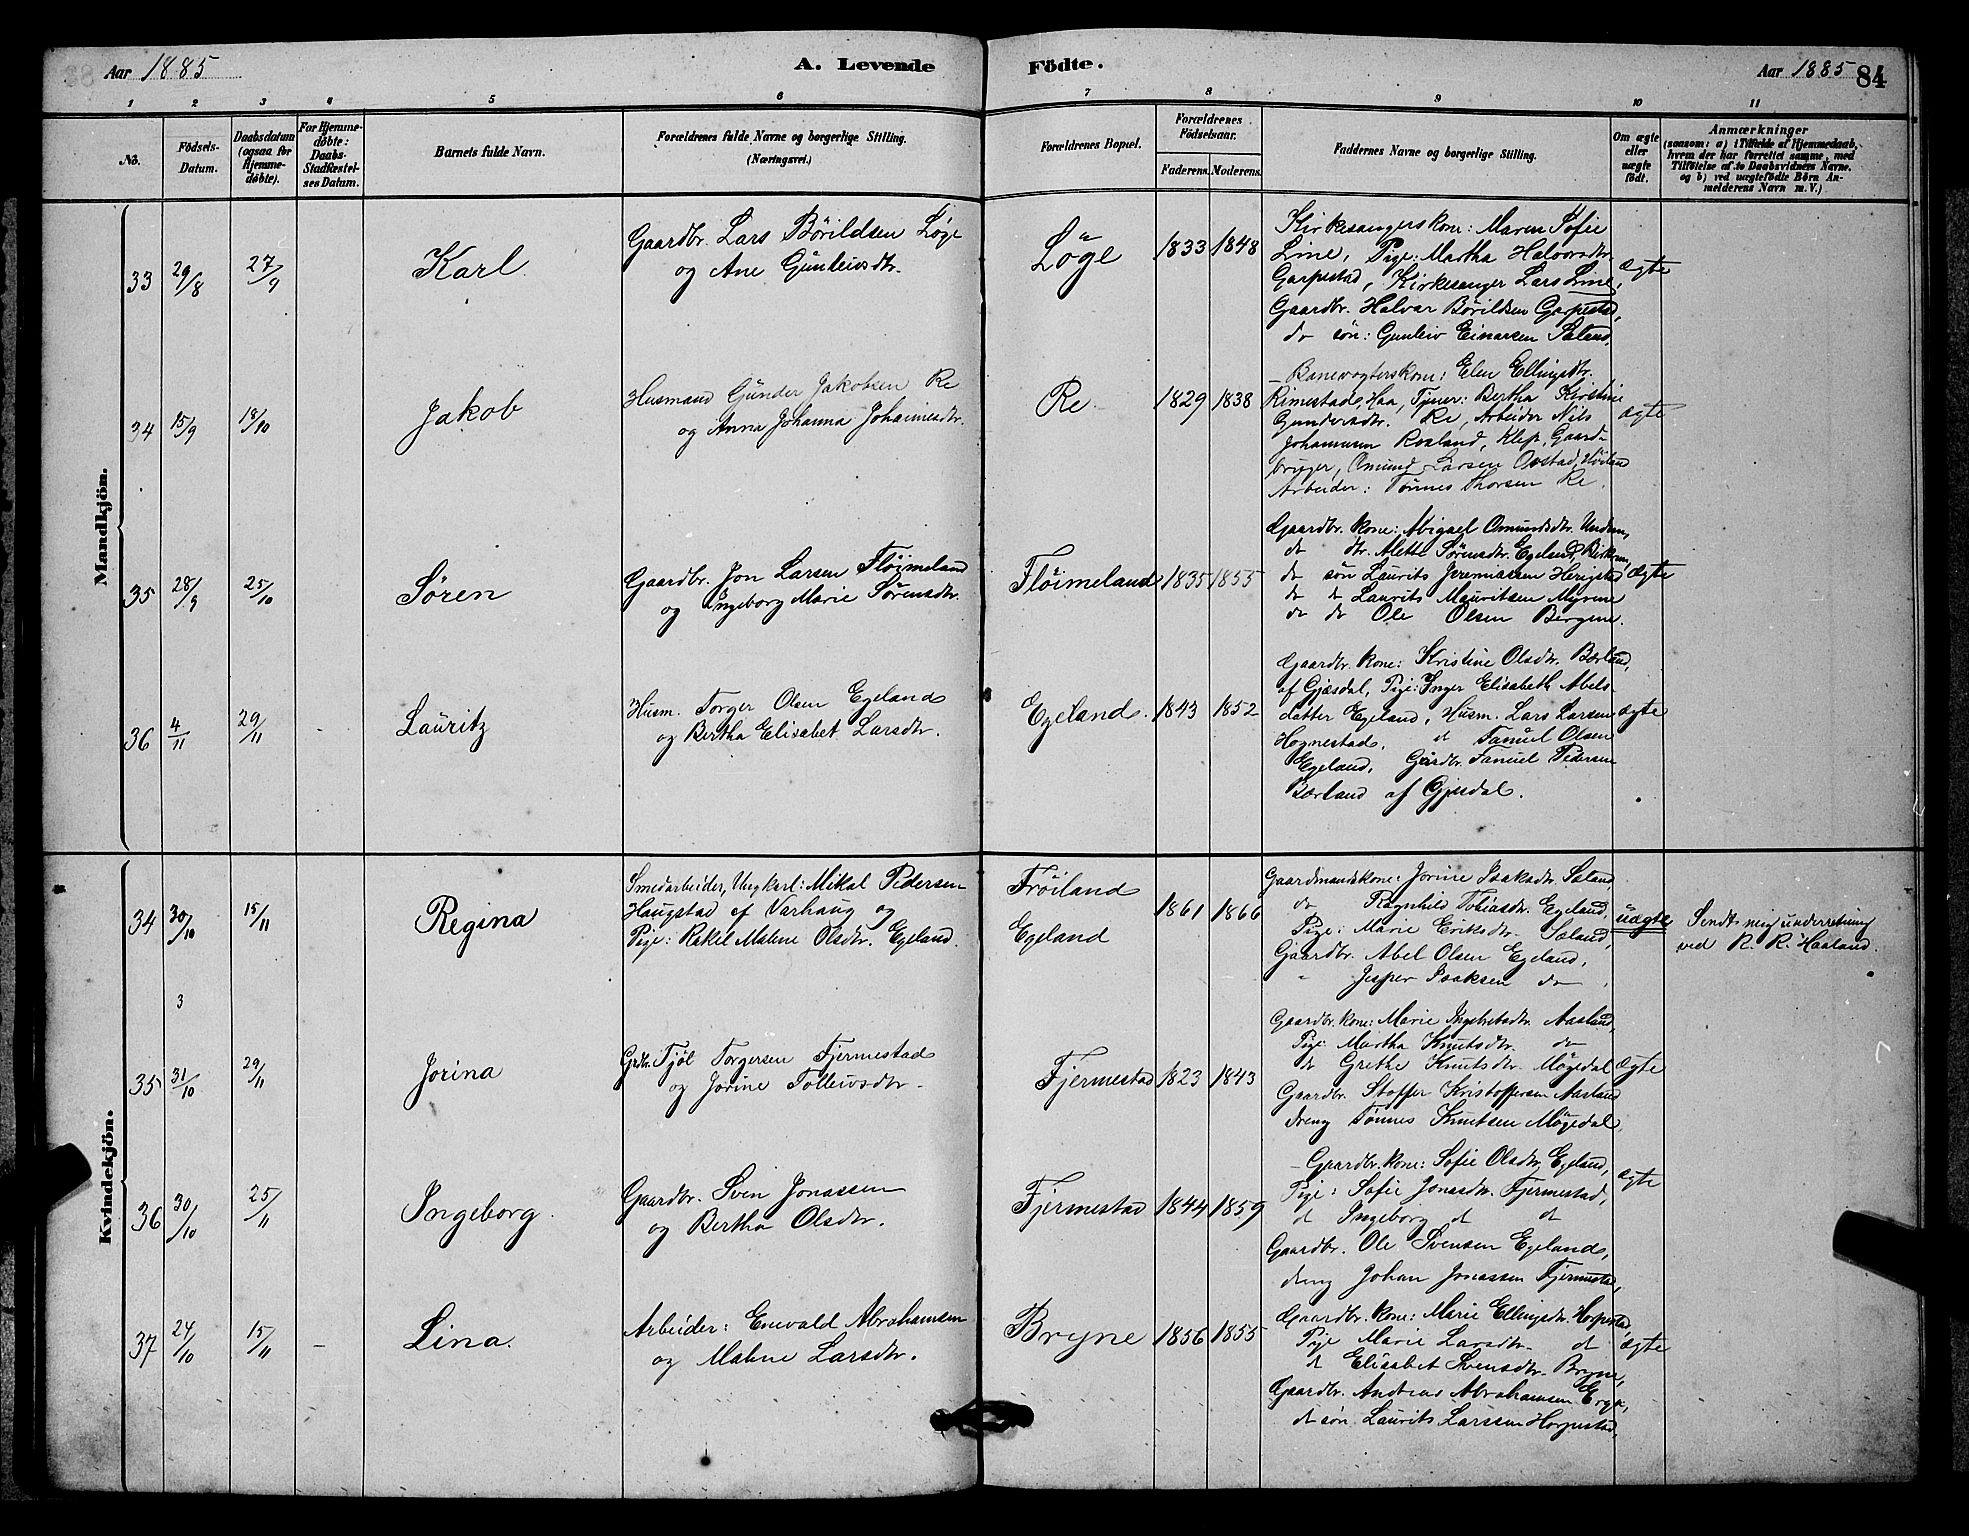 Aar 1885
A. Levende
Födte.
Aar 1885
84
1 2 3 4 5 6 7 8 9 10 11
No.
Födsels-
Datum.
Daabsdatum
(ogsaa for
Hjemme-
döbte).
For Hjemme-
döbte:
Daabs-
Stadfæstel-
ses Datum.
Barnets fulde Navn.
Forældrenes fulde Navne og borgerlige Stilling.
(Næringsvei.)
Forældrenes Bopæl.
Forældrenes
Födselsaar.
Faderens. Moderens.
Faddernes Navne og borgerlige Stilling.
Om ægte
eller
uægte
födt.
Anmærkninger
(saasom: a) i Tilfælde af Hjemmedaab,
hvem der har forrettet samme, med
Tilföielse af to Daabsvidners Navne.
og b) ved uægtefödte Börn An-
melderens Navn m. V.)
Mandkjön.
33 29/8 27/9
Karl.
Gaardbr. Lars Börildsen Löge
og Ane Gunleivsdtr.
Löge
1833 1848
Kirkesangerskone: Maren Sofie
Line, Pige: Martha Halvorsdtr.
Garpestad, Kirkesanger Lars Line,
Gaardbr. Halvar Börildsen Garpestad,
do sön: Gunleiv Einarsen Saland,
ægte
34 15/9 18/10
Jakob
Husmand Gunder Jakobsen Re
og Anna Johanna Johannesdtr.
Re.
1829 1838
Banevogterskone: Elen Ellingsdtr.
Rimestad, Haa, Tjener: Bertha Kirstine
Gundersdtr. Re, Arbeider Nils
Johannesen Rosland, Klep, Gaard-
bruger, Omund Larsen Ovstad, Höiland
Arbeider: Tönnes Thorsen Re.
ægte
35 28/9 25/10
Sören
Gaardbr. Jon Larsen Flöimeland
og Ingeborg Marie Sörensdtr.
Flöimeland
1835 1855
Gaardbr. kone: Abigael Omundsdtr. Undem,
do dtr. Alette Sörensdtr. Egeland,
do sön Laurits Jeremiassen Herigstad
do do Laurits Mauritsen Myrene
do do Ole Olsen Bergene.
ægte
36 4/11 29/11
Lauritz
Husm. Torger Olsen Egeland
og Bertha Elisabet Larsdtr.
Egeland.
1843 1852
Gaardbr. kone: Kristine Olsdtr. Bærland,
af Gjæsdal, Pige: Inger Elisabeth Abels-
datter Egeland, Husm. Lars Larsen
Hognestad, do Tanuel Olsen
Egeland, Gaardbr. Tanuel Pedersen
Bærland af Gjesdal.
ægte
Kvindekjön.
34 30/10 15/11
Regina
Smedarbeider, Ungkarl: Mikal Pedersen
Haugstad af Varhaug og
Pige: Rakel Malene Olsdtr. Egeland.
Fröiland
Egeland
1861 1866
Gaardmandskone: Jorine Isaksdtr. Saland
do Ragnhild Tobiasdtr. Egeland,
Pige: Marie Eriksdtr. Saland,
Gaardbr. Abel Olsen Egeland,
" Jesper Isaksen do
uægte
Sendt mig underretning
ved R. R. Haaland.
3
35 31/10 29/11
Jorina
Grdbr. Tjöl Torgersen Fjermestad
og Jorine Tolleivsdtr.
Fjermestad
1823 1843
Gaardbr. kone: Marie Ingebretsdtr. Aasland,
Pige: Martha Knutsdtr. do
do Grethe Knutsdtr. Mögedal
Gaardbr. Stoffer Kristoffersen Aasland
dreng Tönnes Knutsen Mögedal,
ægte
36 30/10 25/11
Ingeborg.
Gaardbr. Sven Jonassen
og Bertha Olsdtr.
Fjermestad
1844 1859
Gaardbr. kone: Sofie Olsdtr. Egeland,
Pige: Sofie Jonasdtr. Fjermestad,
do Ingeborg do do
Gaardbr. Ole Svensen Egeland,
dreng Johan Jonassen Fjermestad,
ægte
37 24/10 15/11
Lina.
Arbeider: Enevald Abrahamsen
og Malene Larsdtr.
Bryne
1856 1855
Gaardbr. kone: Marie Ellingsdtr. Horpestad,
Pige Marie Larsdtr. do
do Elisabet Svensdtr. Bryne,
Gaardbr. Andreas Abrahamsen
do sön Laurits Larssen Horpestad,
ægte